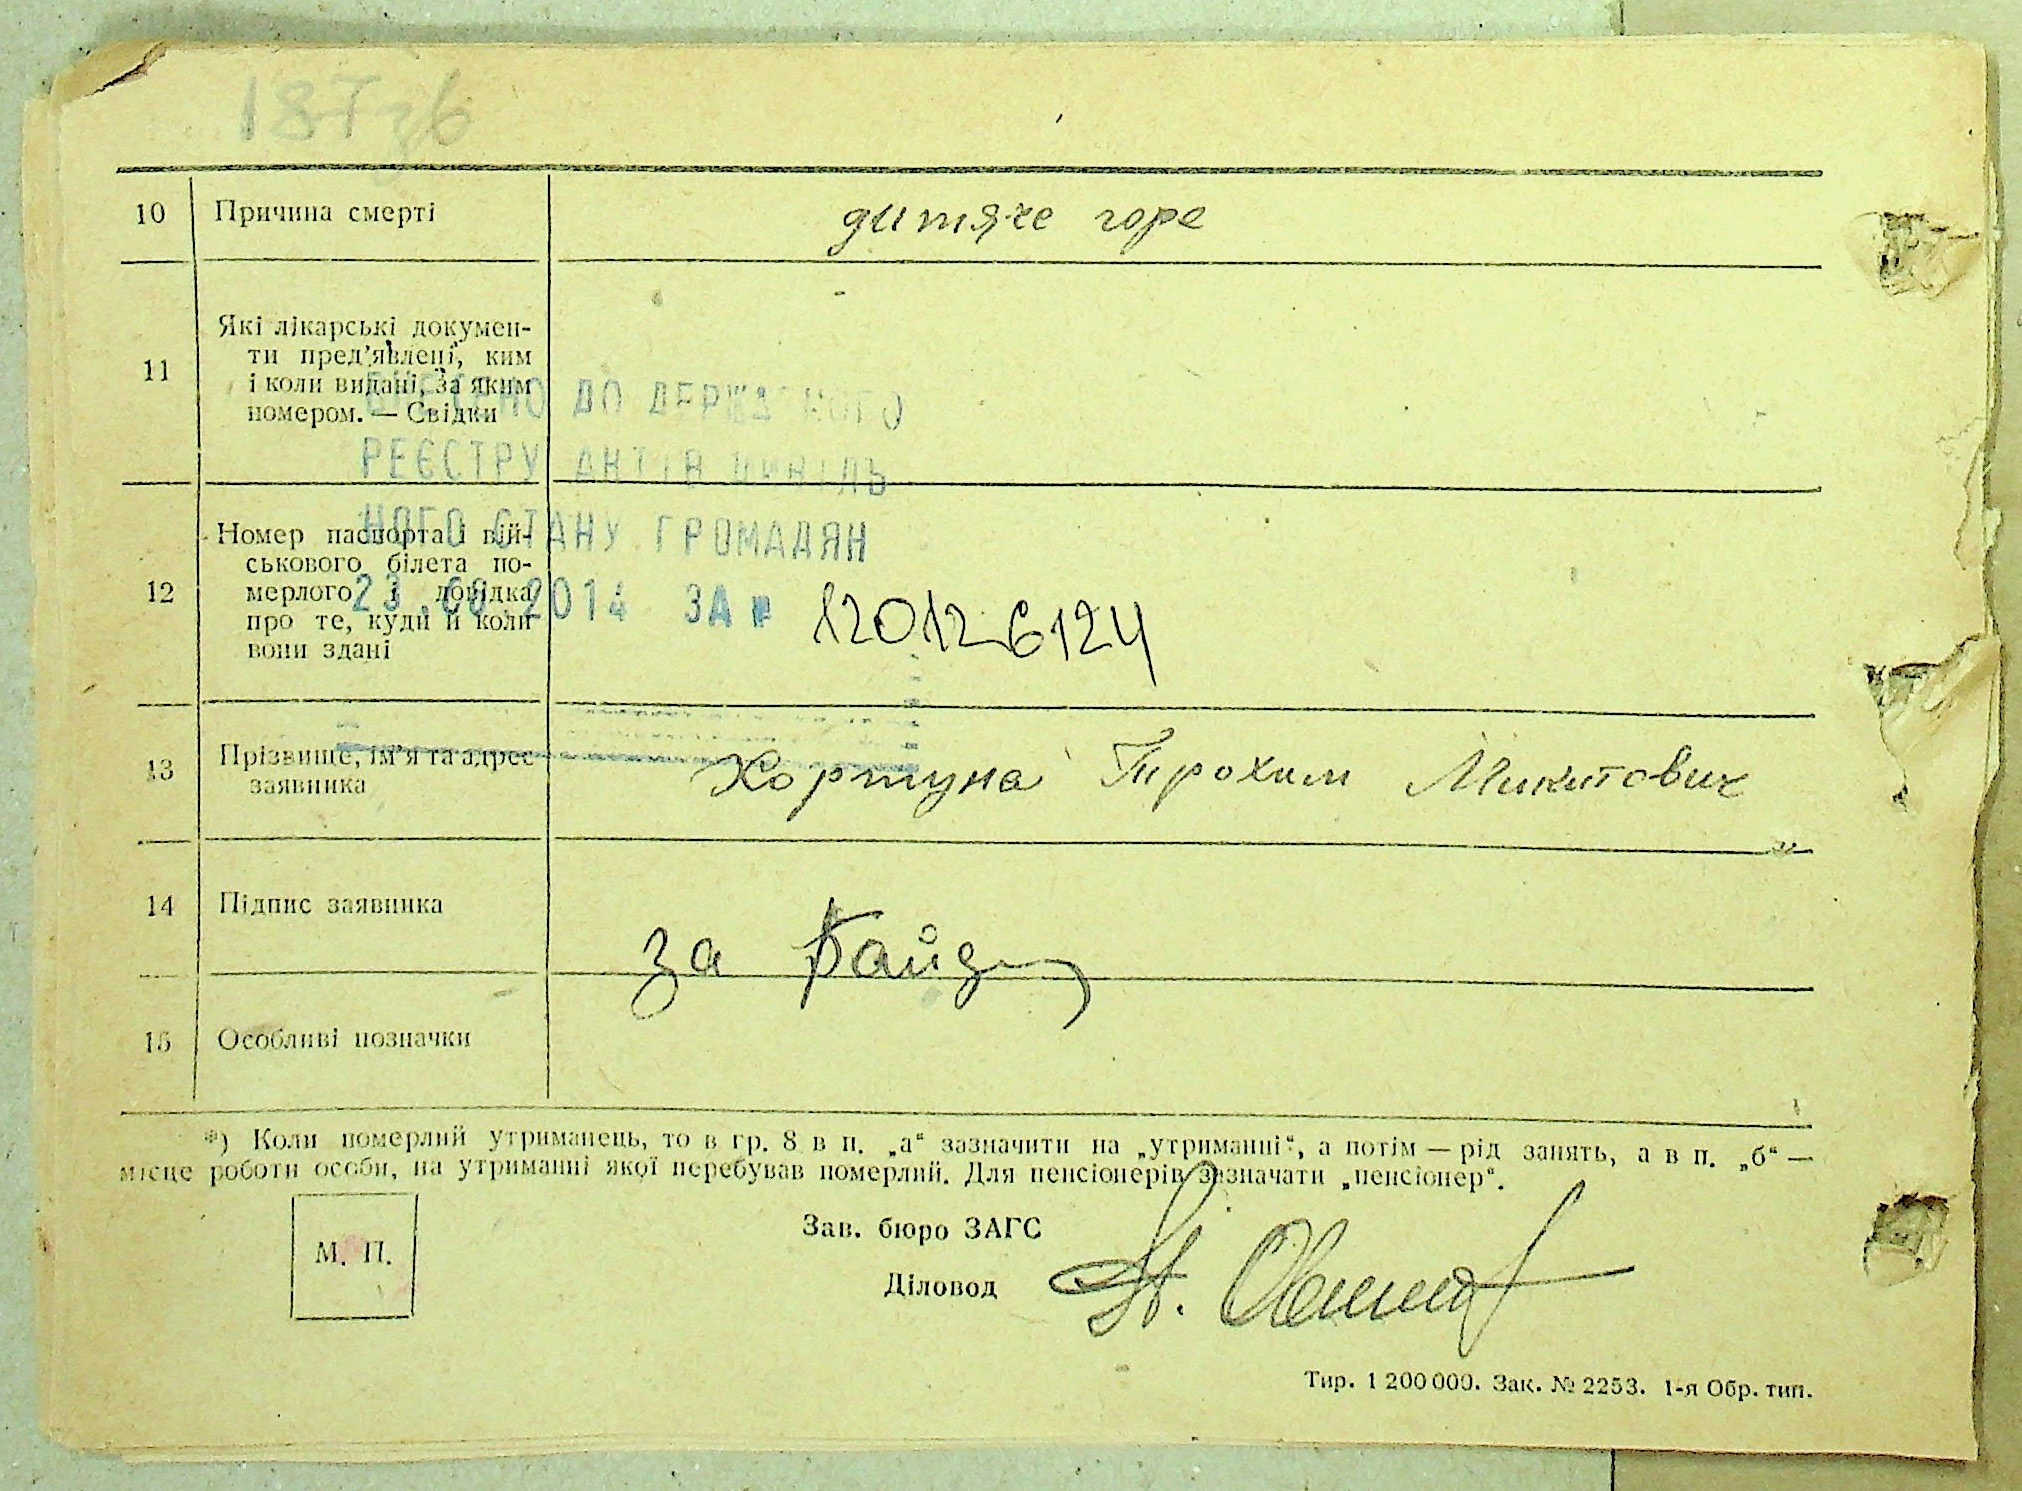 10 Причина смерті дитяче горе
11 Які лікарські докумен-
ти пред’явлені, ким
і коли видані, за яким
номером. — Свідки
ВНЕСЕНО ДО ДЕРЖАВНОГО
РЕЄСТРУ АКТІВ ЦИВІЛЬ
НОГО СТАНУ ГРОМАДЯН
23 2014 ЗА № 120126124
12 Номер паспорта і вій-
ськового білета по-
мерлого і довідка
про те, куди й коли
вони здані
13 Прізвище, ім’я та адрес
заявника
Хортуна Трохим Микитович
14 Підпис заявника
за
15 Особливі позначки
*) Коли померлий утриманець, то в гр. 8 в п. „а“ зазначити на „утриманні“, а потім — рід занять, а в п. „б“ —
місце роботи особи, на утриманні якої перебував померлий. Для пенсіонерів зазначати „пенсіонер“.
М. П.
Зав. бюро ЗАГС
Діловод
Тир. 1 200 000. Зак. № 2253. 1-я Обр. тип.